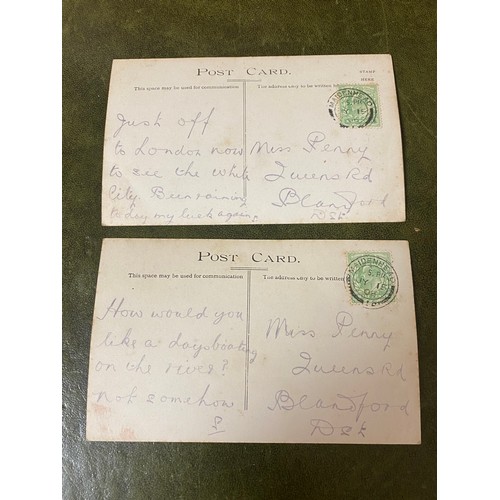 POST CARD.
STAMP
HERE
This space may be used for communication
The address only to be written here
MAIDENHEAD
Just off
to London now
to see the White
City. Burraining
today my luck again.
Miss Penny
Queens Rd
Blandford
Dst
POST CARD.
This space may be used for communication
The address only to be written
MAIDENHEAD
How would you
like a days boating
on the river?
not somehow
Miss Penny
Queens Rd
Blandford
Dst